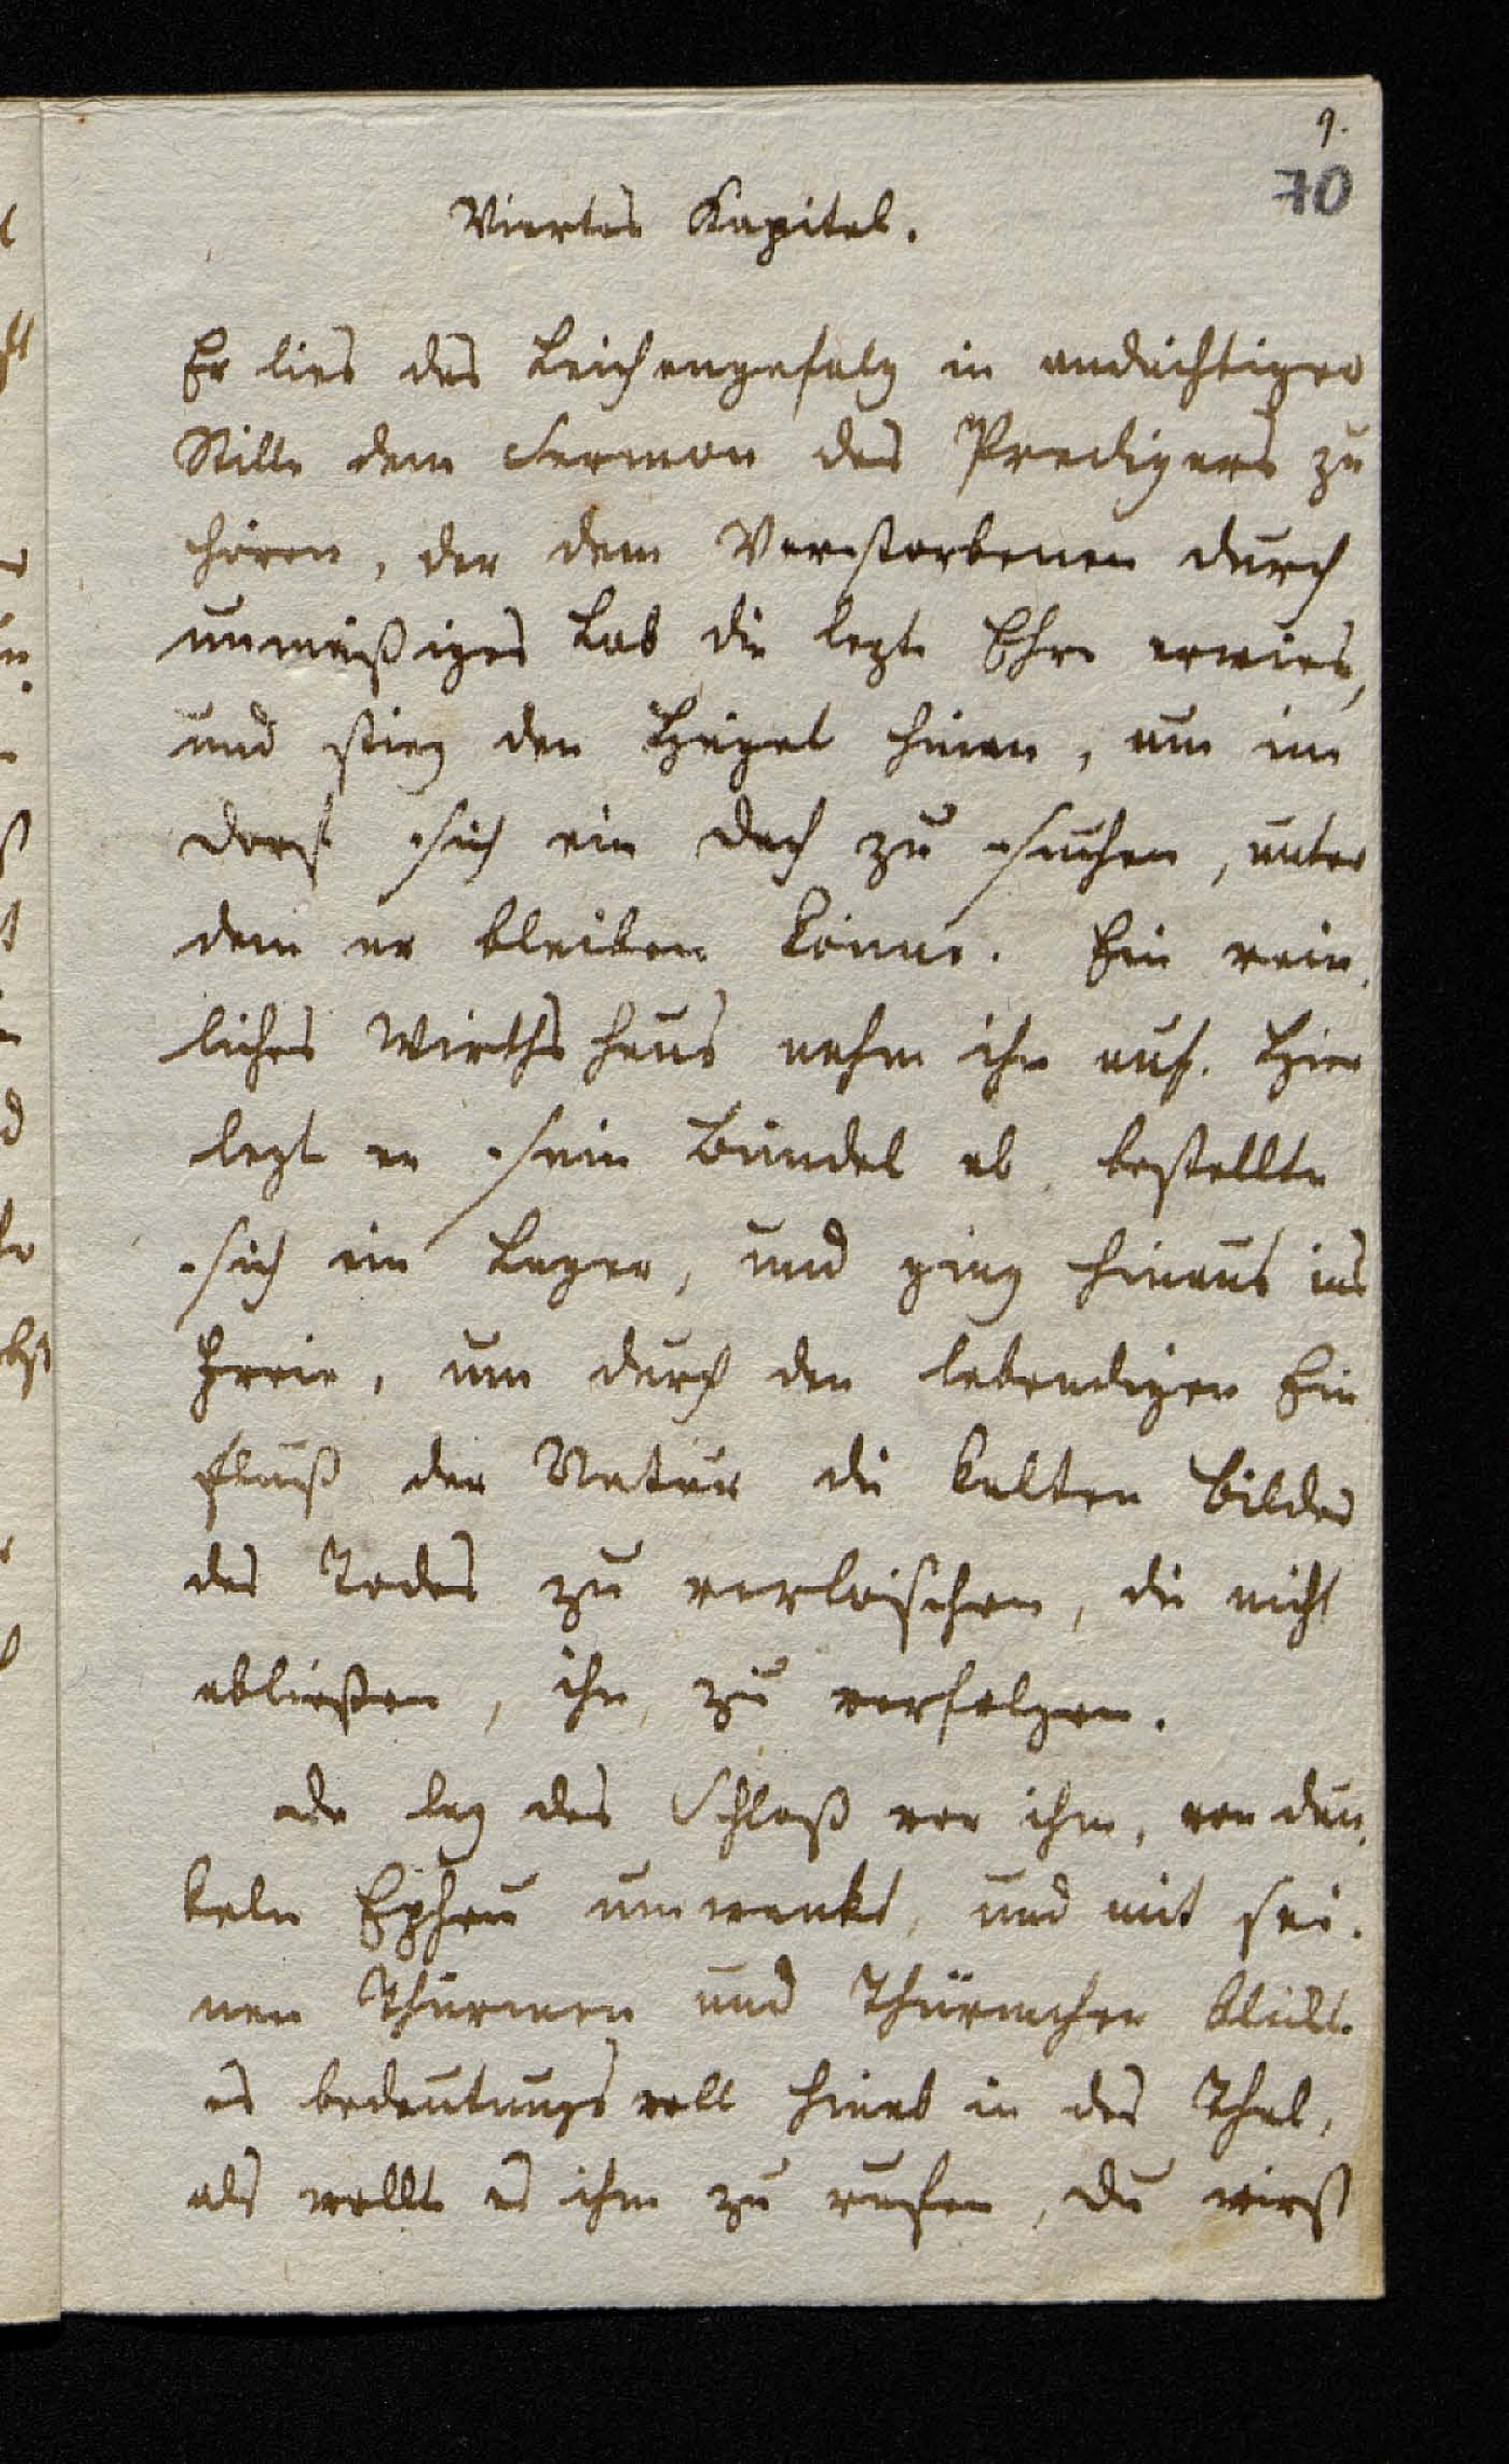 9.
70
Viertes Kapitel.
Er lies das Leichengefolg in andächtiger
Stille dem Sermon des Predigers zu
hören, der dem Verstorbenen durch
unmäßiges Lob die lezte Ehre erwies,
und stieg den Hügel hinan, um im
Dorf sich ein Dach zu suchen, unter
dem er bleiben könne. Ein rein,
liches Wirthshaus nahm ihn auf. Hier
legt er sein Bündel ab, bestellte
sich ein Lager, und ging hinaus ins
Freie, um durch den lebendigen Ein
fluß der Natur die kalten Bilder
des Todes zu verlöschen, die nicht
abließen, ihn, zu verfolgen.
Da lag das Schloß vor ihm, von dun,
keln Epheu umrankt, und mit sei.
nen Thürmen und Thürmchen blickt
es bedeutungsvoll hinab in das Thal,
als wollt es ihm zu rufen, du wirst